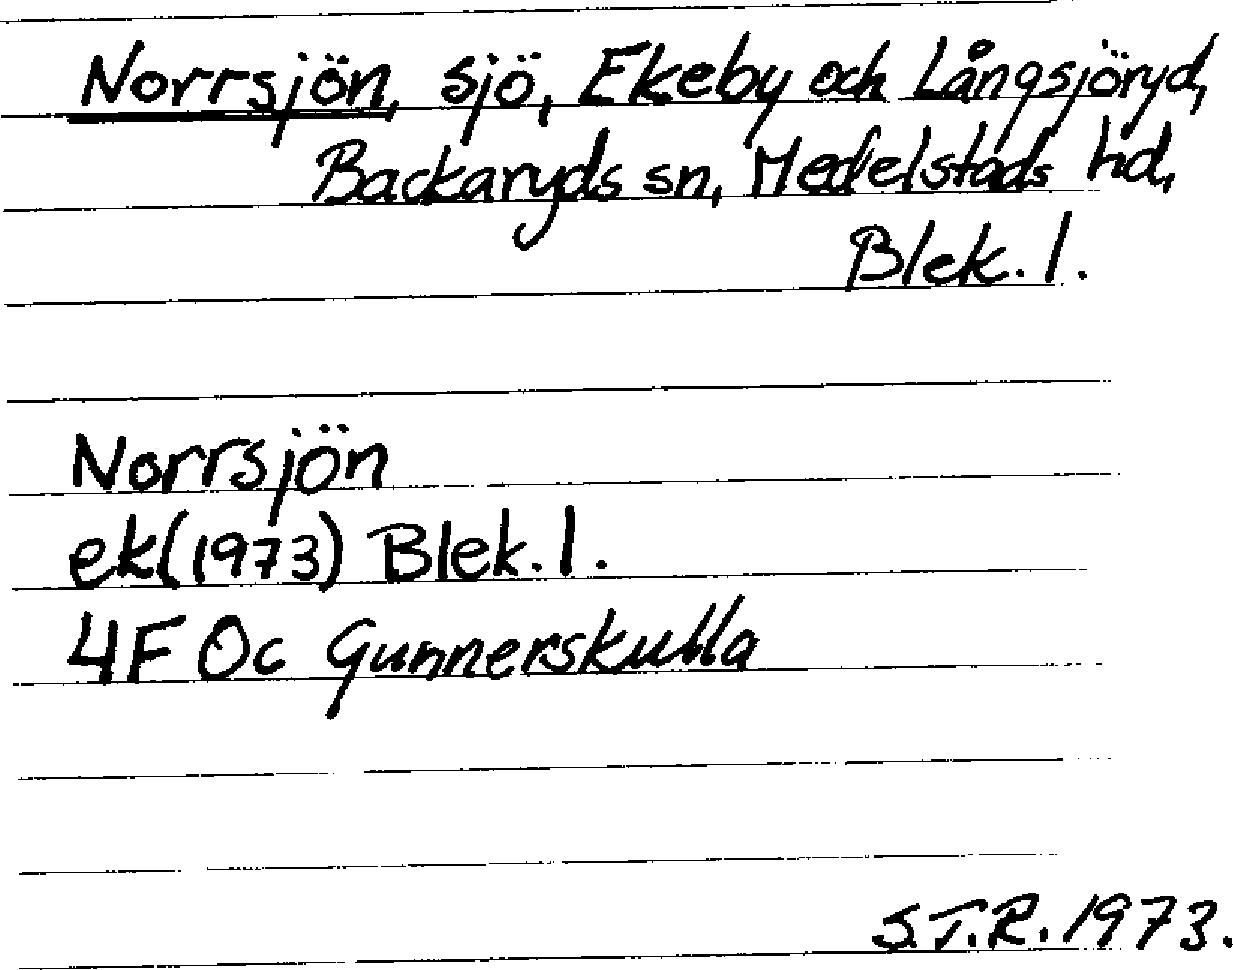 Norrsjön, sjö, Ekeby och Långsjöryd,
Backaryds sn, Medelstads hd,
Blek. l.
Norrsjön
ek (1973) Blek. l.
4F Oc Gunnerskulla
S.T.R. 1973.